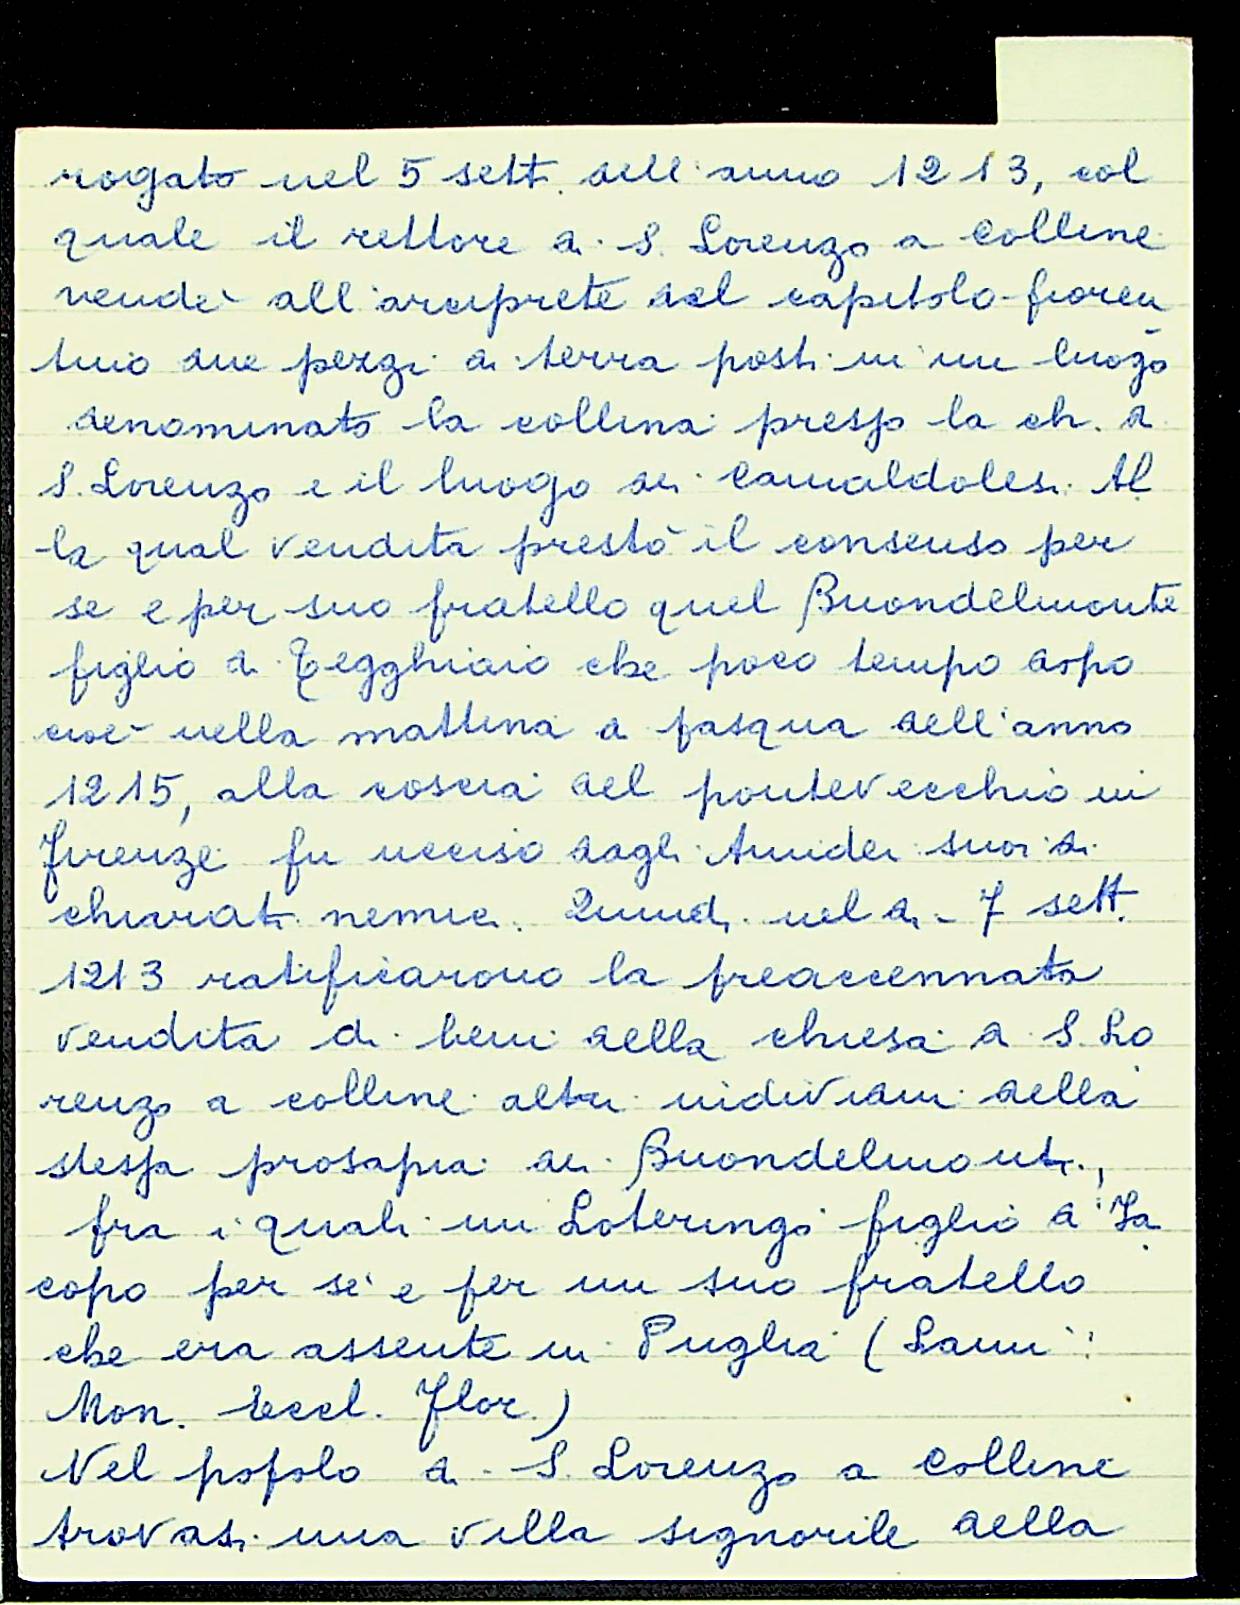 rogato nel 5 sett. dell'anno 1213, col
quale il rettore di S. Lorenzo a Colline
vendè all'arciprete del capitolo fioren
tino due pezzi di terra posti in un luogo
denominato la collina presso la ch. di
S. Lorenzo e il luogo dei Camaldolesi. Al
la qual vendita prestò il consenso per
se e per suo fratello quel Buondelmonte
figlio di Tegghiaio che poco tempo dopo
cioè nella mattina di pasqua dell'anno
1215, alla coscia del pontevecchio in
Firenze fu ucciso dagli Amidei suoi di
chiarati nemici. Quindi nel dì 7 sett.
1213 ratificarono la preaccennata
vendita di beni della chiesa di S. Lo
renzo a colline altri individui della
stessa prosapia dei Buondelmonti,
fra i quali un Loteringo figlio di Ja
copo per sè e per un suo fratello
che era assente in Puglia (Lami:
Mon. Eccl. Flor.)
Nel popolo di S. Lorenzo a Colline
trovasi una villa signorile della